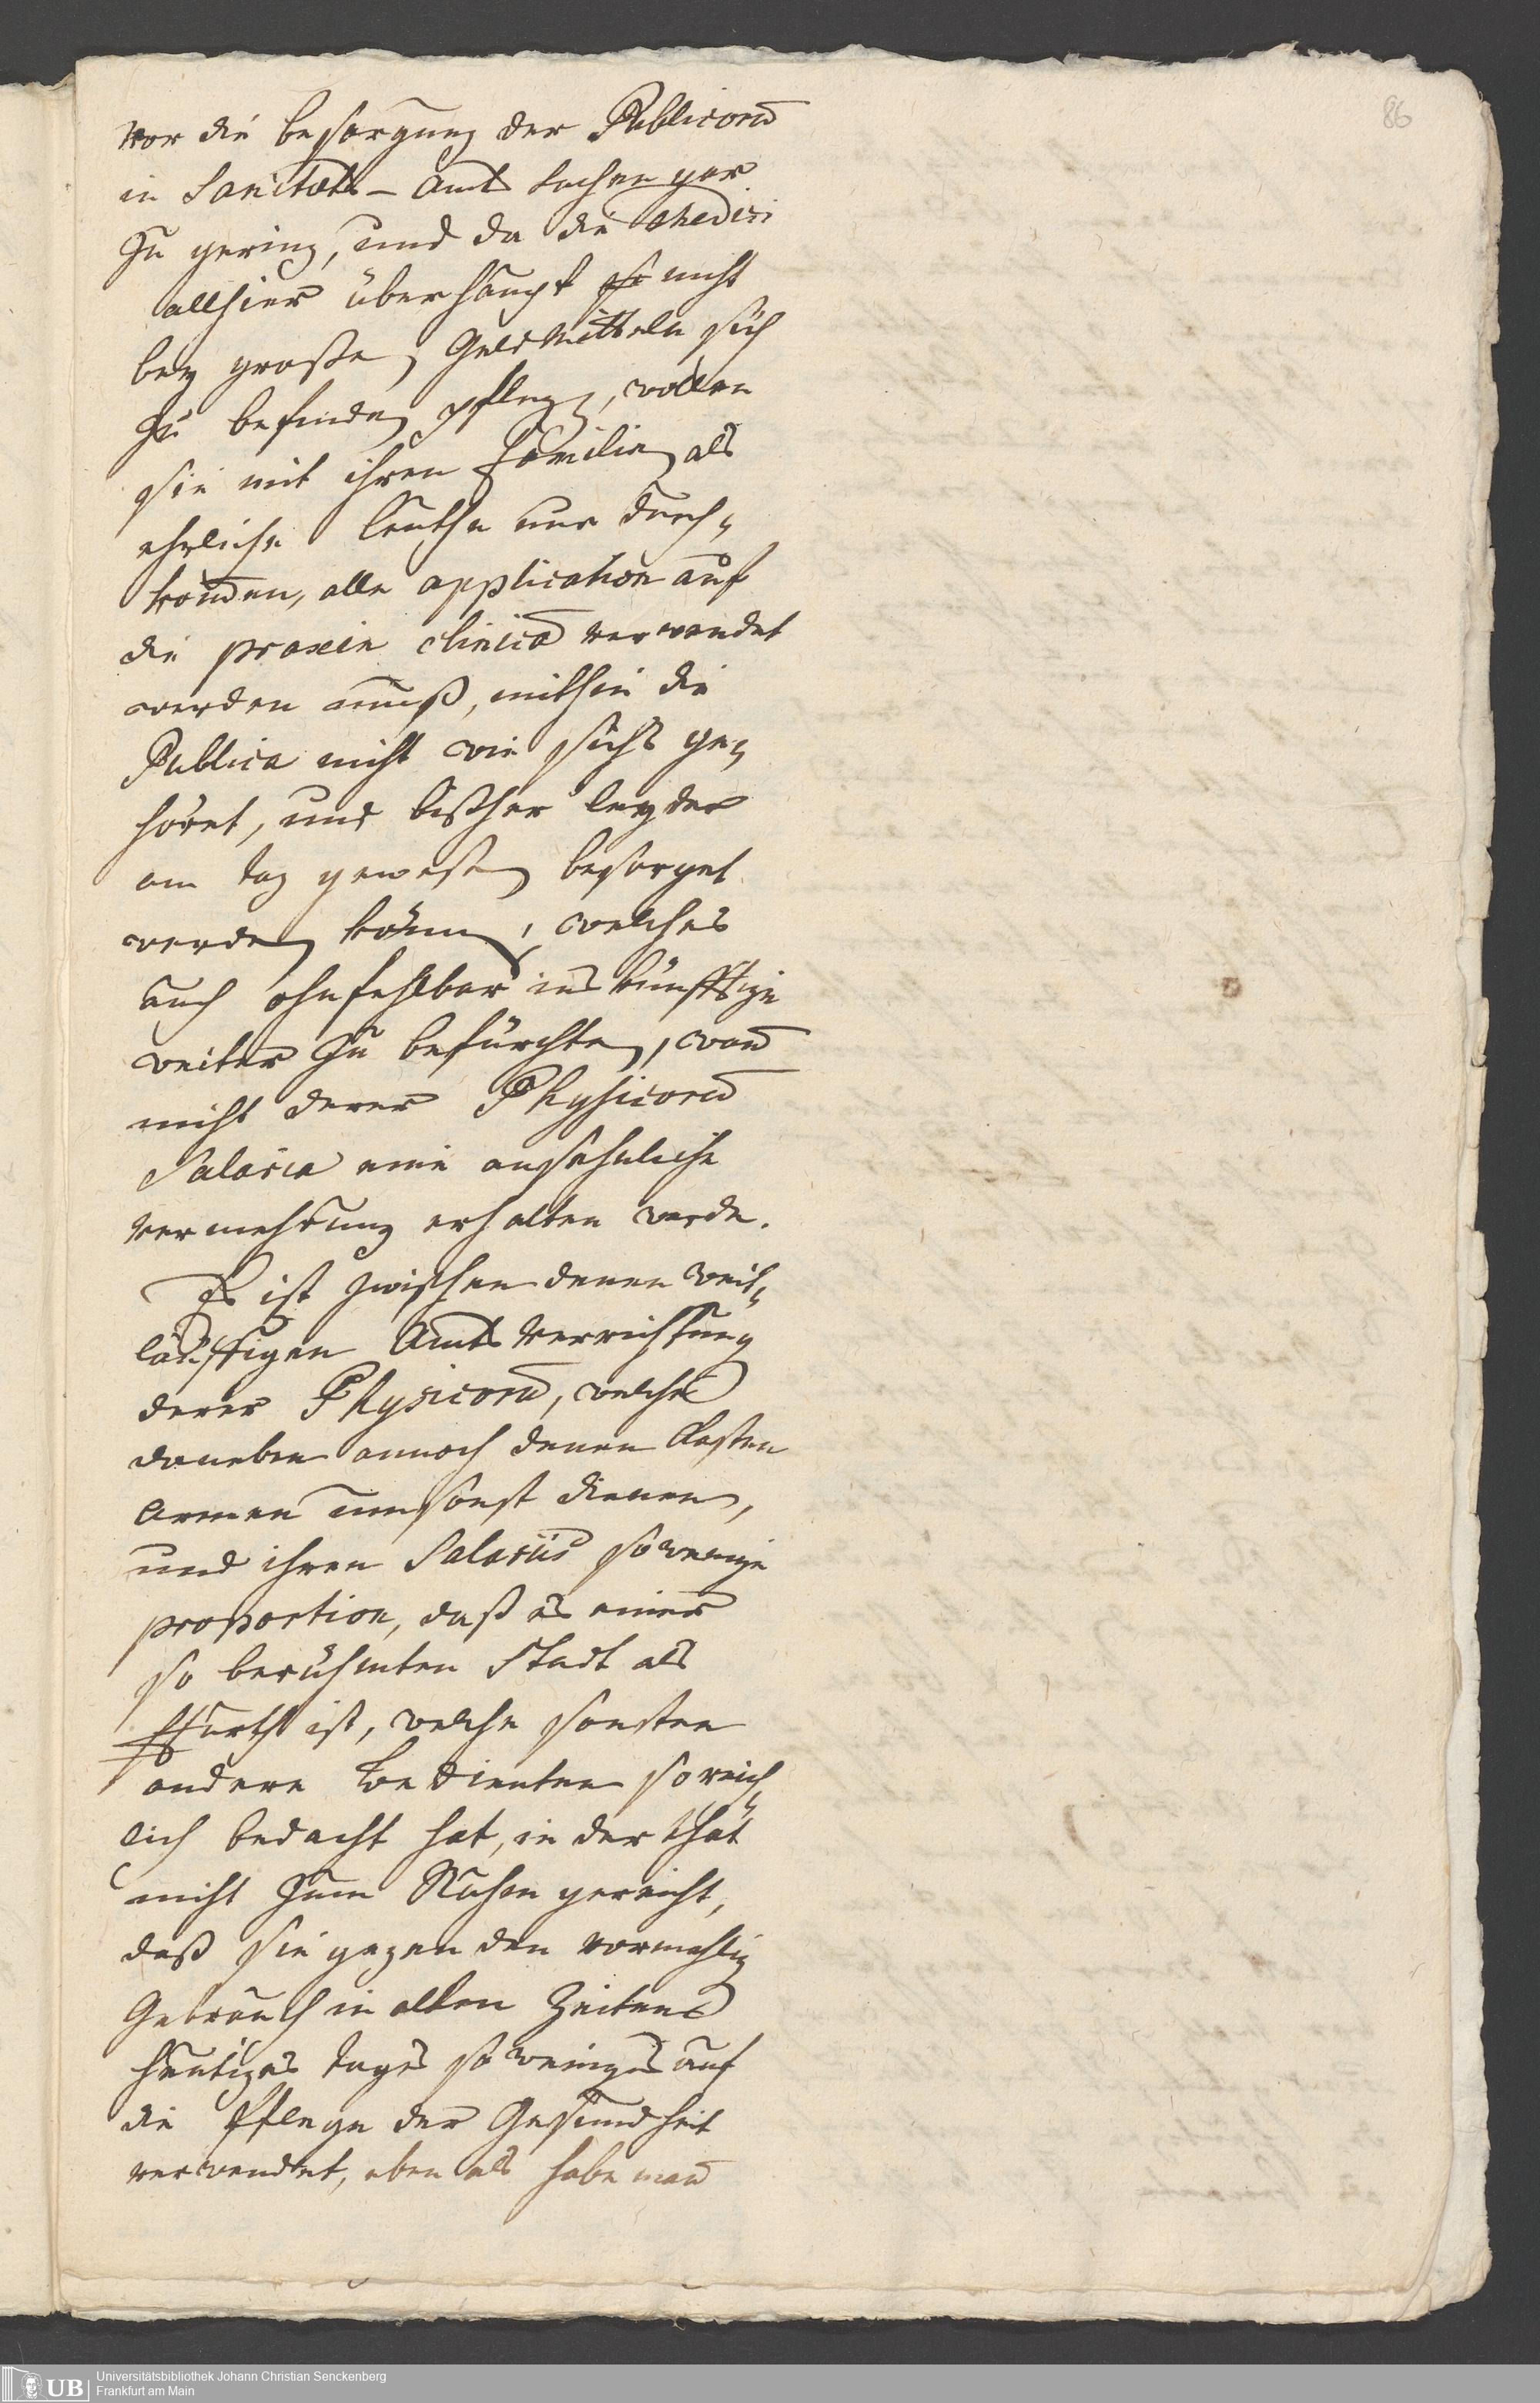 86
vor die besorgung der Publicorū
in Sanitæts-Amts sachen gar
zu gering, und da die Medici
allhier überhaupt so nicht
bey großen Geldmitteln sich
zu befinden pflegen, wollen
sie mit ihren Familien als
ehrliche Leuthe nur durch-
kom̄en, alle application auf
die praxin clinicā verwendet
werden muß, mithin die
Publica nicht wie sichs ge-
höret, und bißher leyder
am tag gewesen besorget
werden können, welches
auch ohnfehlbar ins künfftige
weiter zu befürchten, wan̄
nicht derer Physicorū
Salaria eine ansehnliche
vermehrung erhalten werde.
Es ist zwischen denen weit-
läufftigen Amts Verrichtung
derer Physicorū, welche
daneben annoch denen Casten
Armen umsonst dienen,
und ihren Salariis so wenige
proportion, daß es einer
so berühmten Stadt als
Ffurth ist, welche sonsten
andere Bedienten so reich-
lich bedacht hat, in der that
nicht zum Ruhm gereicht,
daß sie gegen den vormahlig
Gebrauch in alten Zeiten
heutiges tages so weniges auf
die Pflege der Gesundheit
verwendet, eben als habe man̄
UB
Universitätsbibliothek Johann Christian Senckenberg
Frankfurt am Main